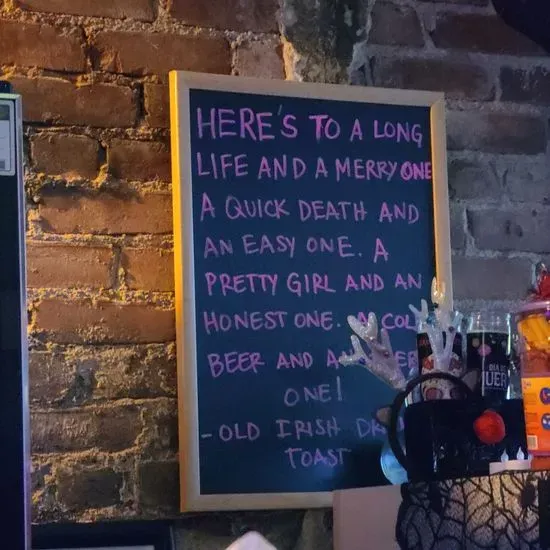 HERE'S TO A LONG
LIFE AND A MERRY ONE
A QUICK DEATH AND
AN EASY ONE. A
PRETTY GIRL AND AN
HONEST ONE. A COL
BEER AND A
ONE!
-OLD IRISH DR
TOAST
UER